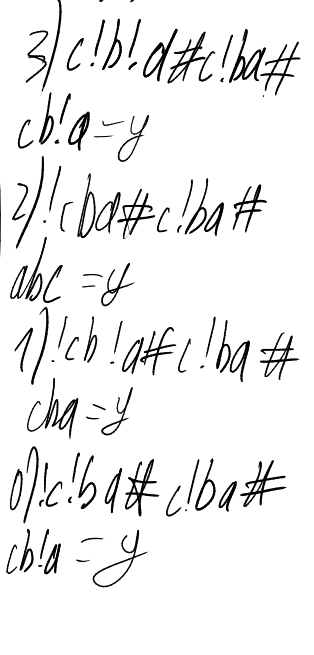 3) c!b!a#c!ba#
cb!a=y
2)!cba#c!ba#
abc=y
1)!cb!a#c!ba#
cba=y
0)!c!ba#c!ba#
cb!a=y